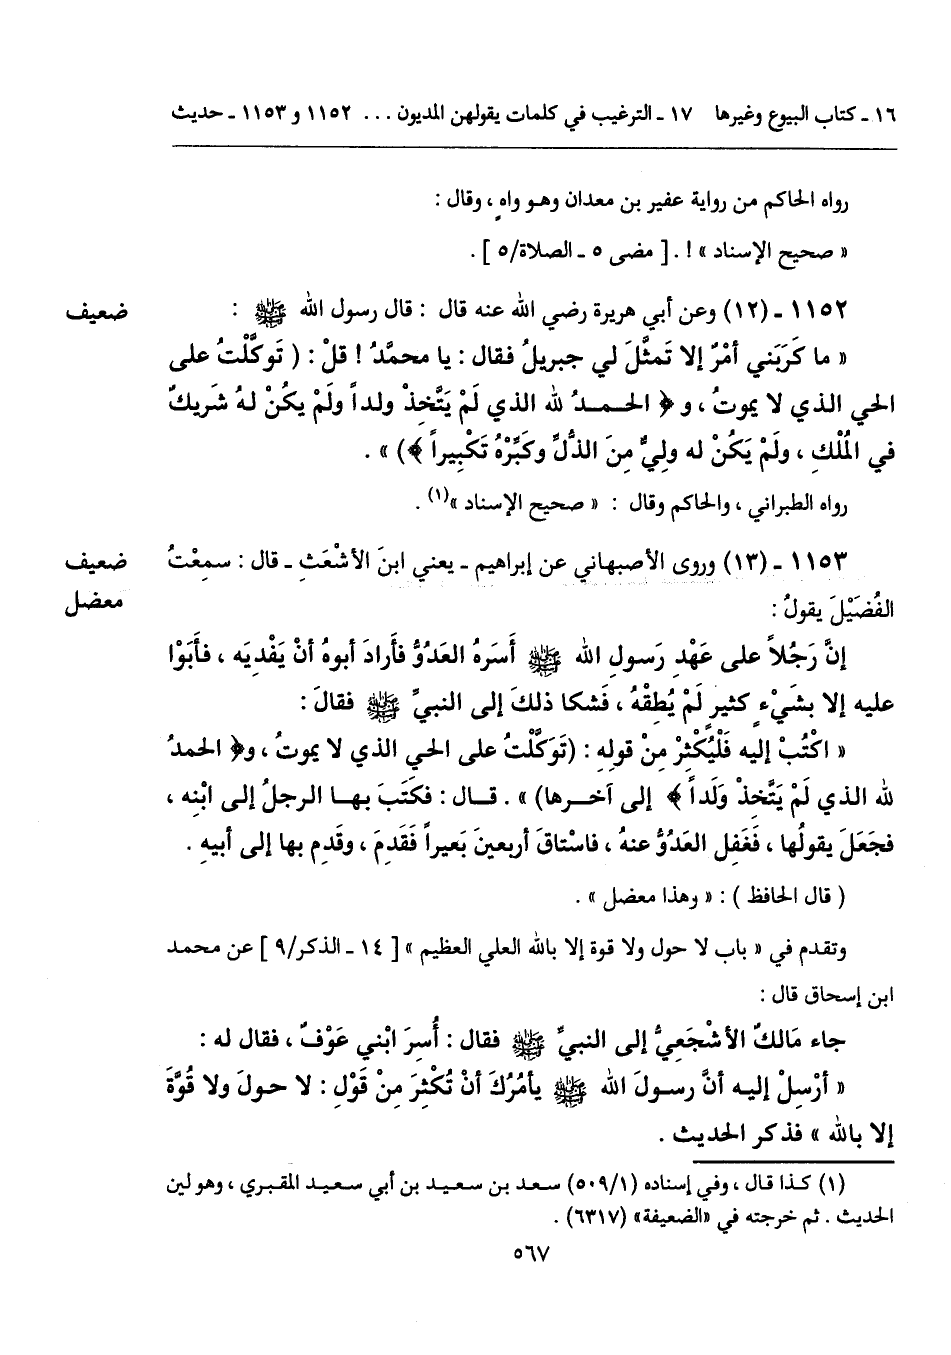 ١٦ ـ كتاب البيوع وغيرها ١٧ ـ الترغيب في كلمات يقولهن المديون . . . ١١٥٢ و ١١٥٣ ـ حديث
رواه الحاكم من رواية عفير بن معدان وهو واهٍ ، وقال :
« صحيح الإسناد » ! . [ مضى ٥ ـ الصلاة/٥ ] .
١١٥٢ ـ (١٢) وعن أبي هريرة رضي الله عنه قال : قال رسول الله ﷺ : ضعيف
« ما كَرَبَني أمْرٌ إلا تَمثَّلَ لي جبريلُ فقال : يا محمَّدُ ! قلْ : ( تَوكَّلْتُ على
الحي الذي لا يموتُ ، و ﴿ الحـمـدُ لله الذي لَمْ يَتَّخِذْ ولداً ولَمْ يكُنْ لهُ شَريكٌ
في المُلْكِ ، ولَمْ يَكُنْ له ولِيٌّ مِنَ الذُّلِّ وكَبِّرْهُ تَكْبِيراً ﴾) » .
رواه الطبراني ، والحاكم وقال : « صحيح الإسناد »(١) .
١١٥٣ ـ (١٣) وروى الأصبهاني عن إبراهيم ـ يعني ابنَ الأشْعَثِ ـ قال : سمِعْتُ ضعيف
الفُضَيْلَ يقولُ : معضل
إنَّ رَجُلاً على عَهْدِ رَسولِ الله ﷺ أَسَرَهُ العَدُوُّ فأرادَ أبوهُ أنْ يَفْدِيَه ، فأبَوْا
عليه إلا بشَيْءٍ كثيرٍ لَمْ يُطِقْهُ ، فَشكا ذلكَ إلى النبيِّ ﷺ فقالَ :
« اكْتُبْ إليه فَلْيُكْثِرْ مِنْ قولِه : (تَوَكَّلْتُ على الحي الذي لا يموتُ ، و﴿ الحمدُ
لله الذي لَمْ يَتَّخِذْ وَلَداً ﴾ إلى آخـرها) » . قـال : فكَتَبَ بهـا الرجلُ إلى ابْنِه ،
فجَعَلَ يقولُها ، فَغَفِل العَدُوُّ عنهُ ، فاسْتاقَ أربعينَ بَعيراً فَقَدِمَ ، وقَدِم بها إلى أبيه .
( قال الحافظ ) : « وهذا معضل » .
وتقدم في « باب لا حول ولا قوة إلا بالله العلي العظيم » [ ١٤ ـ الذكر/٩ ] عن محمد
ابن إسحاق قال :
جاء مَالكٌ الأشْجَعِيُّ إلى النبيِّ ﷺ فقال : أُسِرَ ابْني عَوْفٌ ، فقال له :
« أرْسِلْ إليـه أنَّ رسـولَ الله ﷺ يأمُرُكَ أنْ تُكْثِرَ مِنْ قَوْلِ : لا حولَ ولا قُوَّةَ
إلا بالله » فذكر الحديث .
(١) كـذا قال ، وفي إسناده (١/٥٠٩) سـعـد بن سـعيـد بن أبي سـعيـد المقبـري ، وهو لين
الحديث . ثم خرجته في «الضعيفة» (٦٣١٧) .
٥٦٧